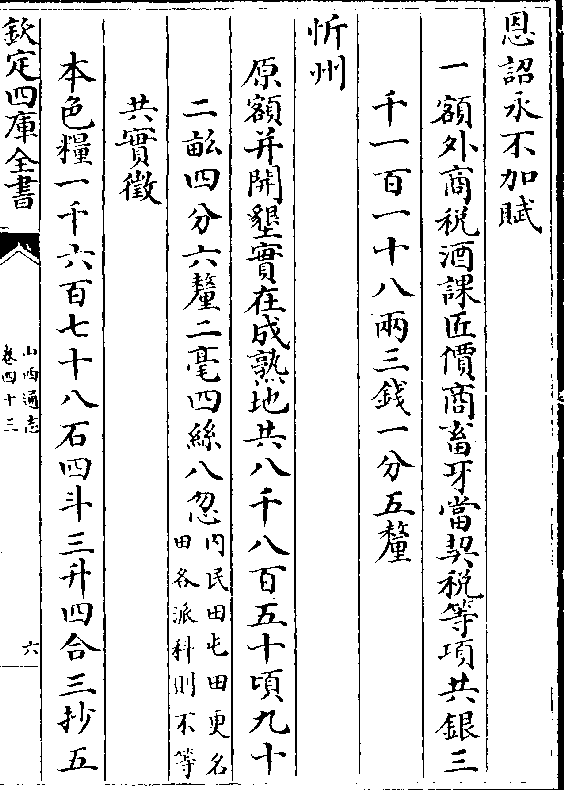 恩詔永不加賦
一額外商稅酒課匠價商畜牙當契稅等項共銀三
千一百一十八兩三錢一分五釐
忻州
原額并開墾實在成熟地共八千八百五十頃九十
二畝四分六釐二毫四絲八忽內民田屯田更名
田各派科則不等
共實徵
本色糧一千六百七十八石四斗三升四合三抄五
欽定四庫全書
山西通志
卷四十三
六